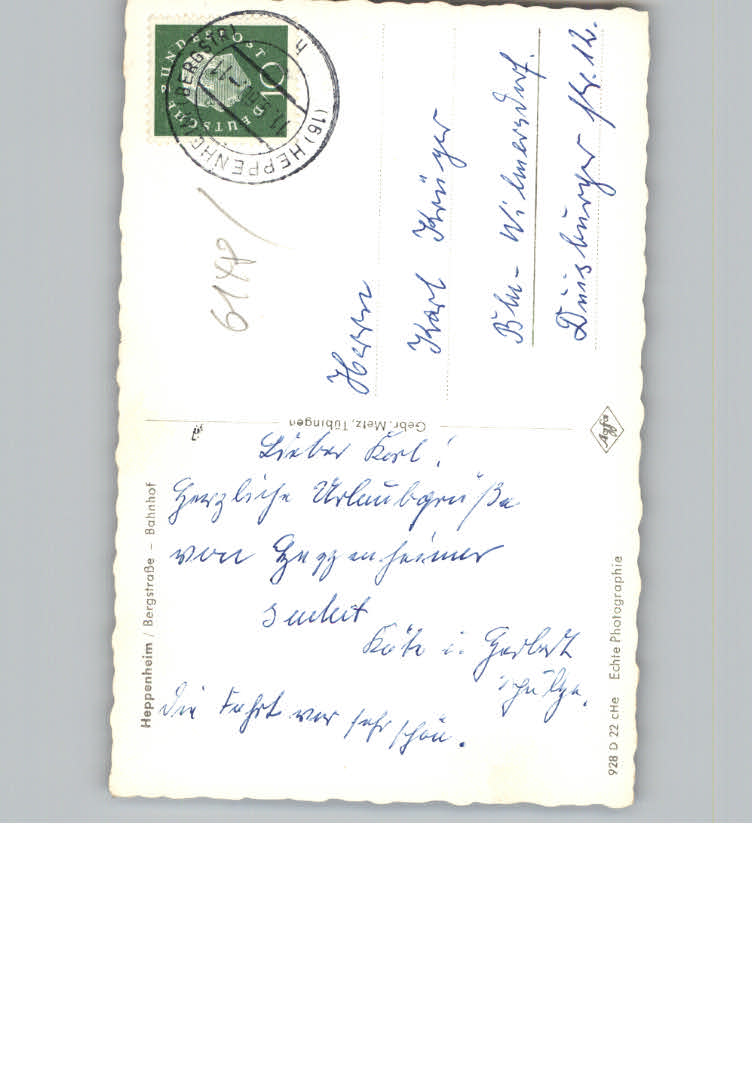 Heppenheim / Bergstraße – Bahnhof
Lieber Karl!
Herzliche Urlaubgrüße
von Heppenheimer
sendet
Käte u. Herbert
Schulze.
Die Fahrt war sehr schön.
928 D 22 cHe Echte Photographie
Gebr. Metz, Tübingen
Agfa
DEUTSCHE BUNDESPOST
10
(16) HEPPENHEIM (BERGSTR)
h
6148
Herrn
Karl Krüger
Bln- Wilmersdorf.
Duisburger Str. 12.